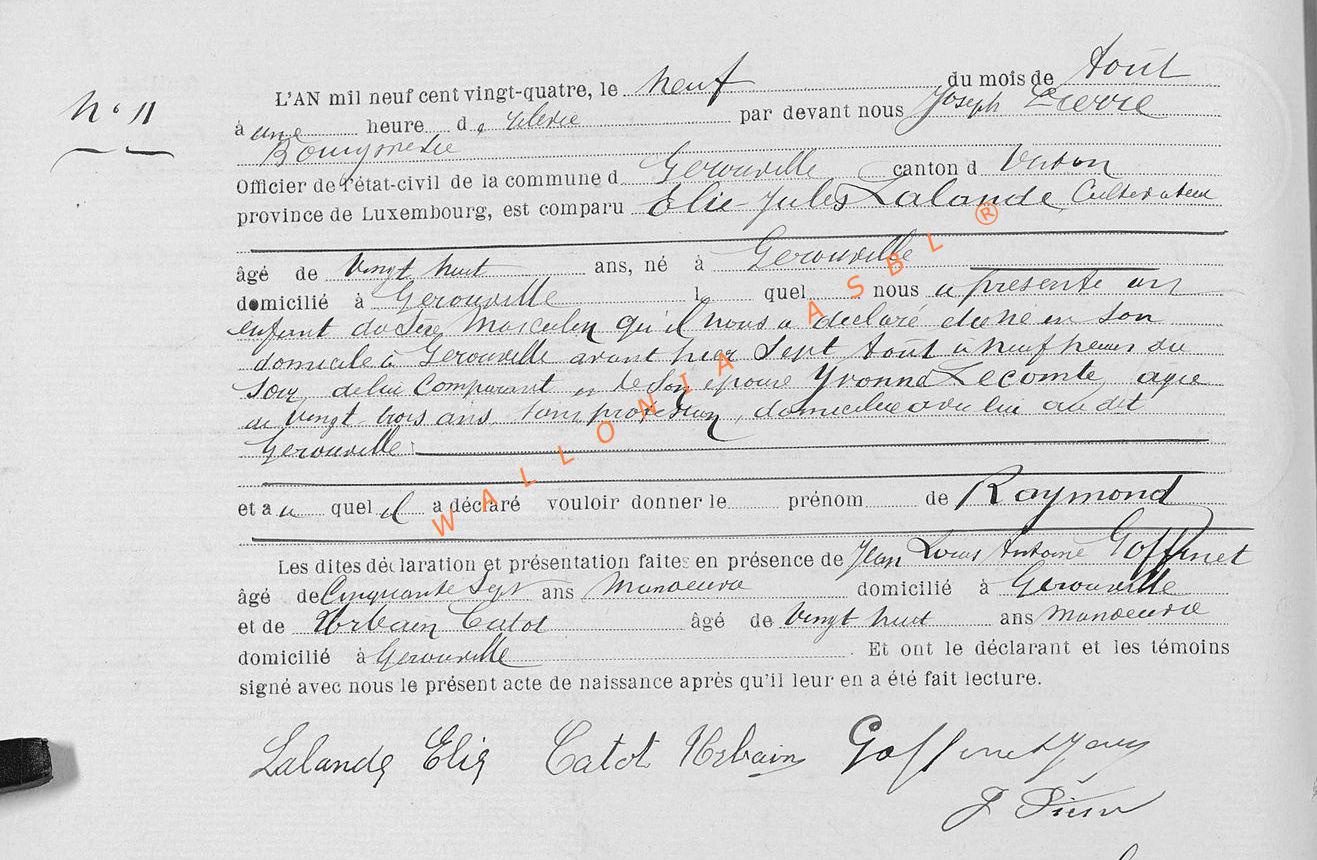 N° 11
L'AN mil neuf cent vingt-quatre, le neuf du mois de Août
à une heure d par devant nous Joseph Pierre
Bourgmestre
Officier de l'état-civil de la commune d Gerouville canton d Virton
province de Luxembourg, est comparu Elie Jules Lalande Cultivateur
âgé de vingt huit ans, né à Gerouville
domicilié à Gerouville l quel nous a présenté un
enfant du Sexe Masculin qu'il nous a déclaré être né en son
domicile à Gerouville avant hier Sept Août à neuf heures du
soir de lui Comparant et de son épouse Yvonne Lecomte, agée
de vingt trois ans, sans profession, domiciliée avec lui au dit
Gerouville.
et a u quel il a déclaré vouloir donner le prénom de Raymond
Les dites déclaration et présentation faites en présence de Jean Louis Antoine Goffinet
âgé de Cinquante Sept ans Manoeuvre domicilié à Gerouville
et de Urbain Catot âgé de vingt huit ans Manoeuvre
domicilié à Gerouville. Et ont le déclarant et les témoins
signé avec nous le présent acte de naissance après qu'il leur en a été fait lecture.
Lalande Elie Catot Urbain Goffinet Jean
J Pierre
WALLONIA ASBL ®